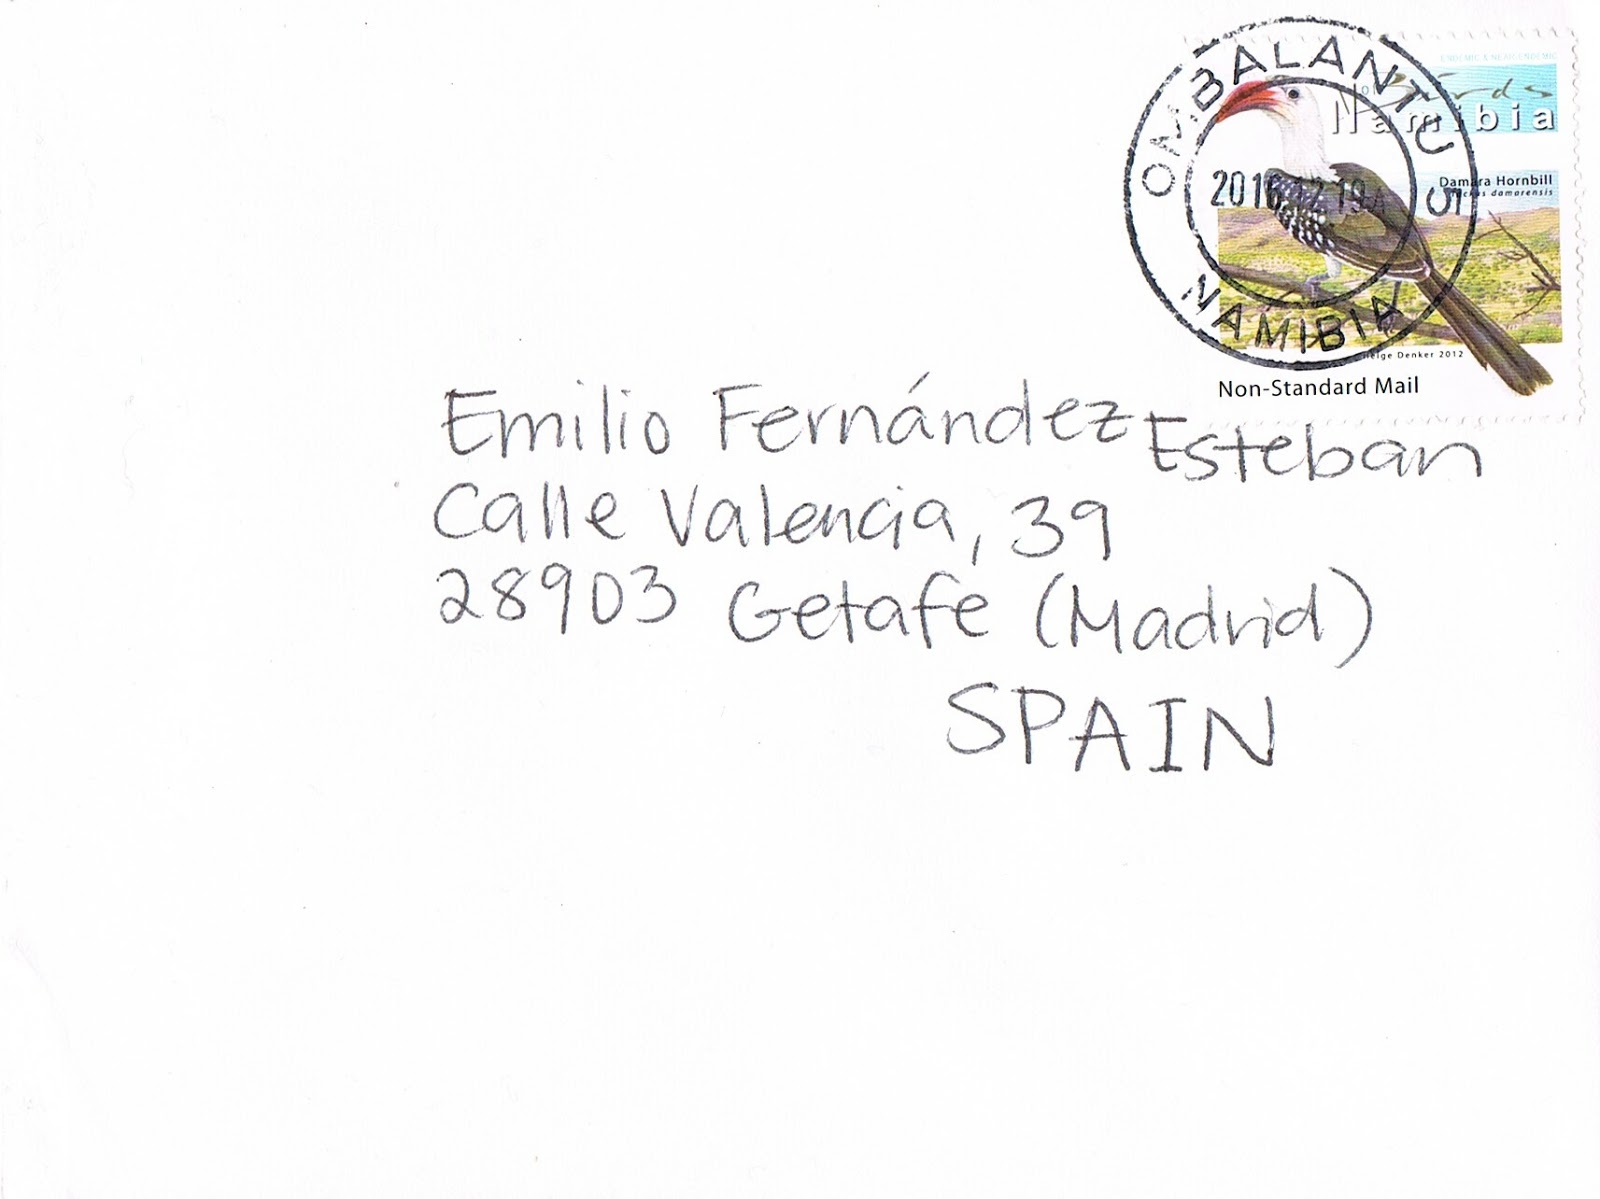 OMBALANTU 5
2016.12.19
NAMIBIA
ENDEMIC & NEAR ENDEMIC
Birds
of
Namibia
Damara Hornbill
damarensis
Denker 2012
Non-Standard Mail
Emilio Fernández Esteban
Calle Valencia, 39
28903 Getafe (Madrid)
SPAIN